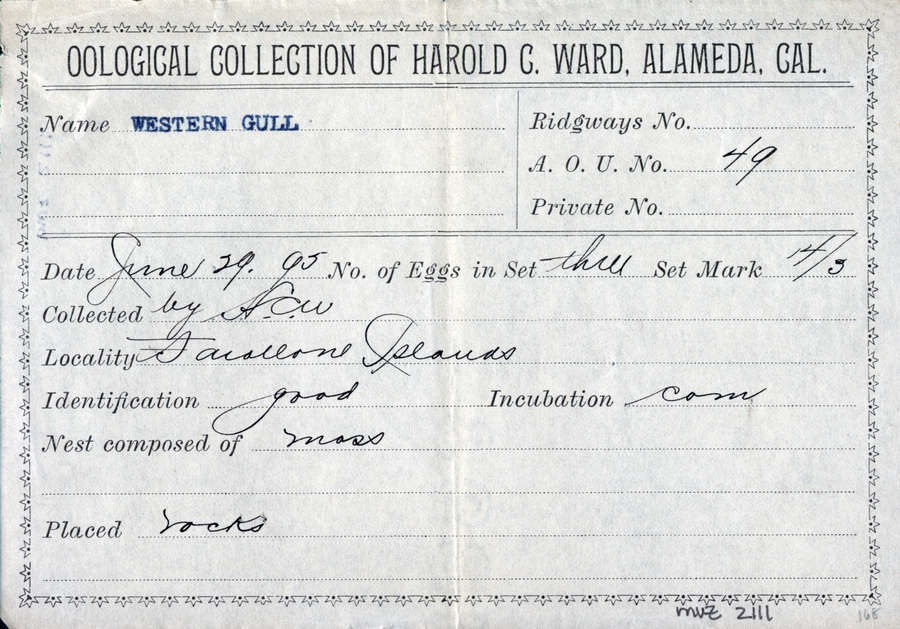 OOLOGICAL COLLECTION OF HAROLD C. WARD, ALAMEDA, CAL.
Name WESTERN GULL
Ridgways No.
A. O. U. No. 49
Private No.
Date June 29. 95 No. of Eggs in Set three Set Mark 14/3
Collected by H.C.W
Locality Farallone Islands
Identification good Incubation com
Nest composed of moss
Placed rocks
mvz 2111
168